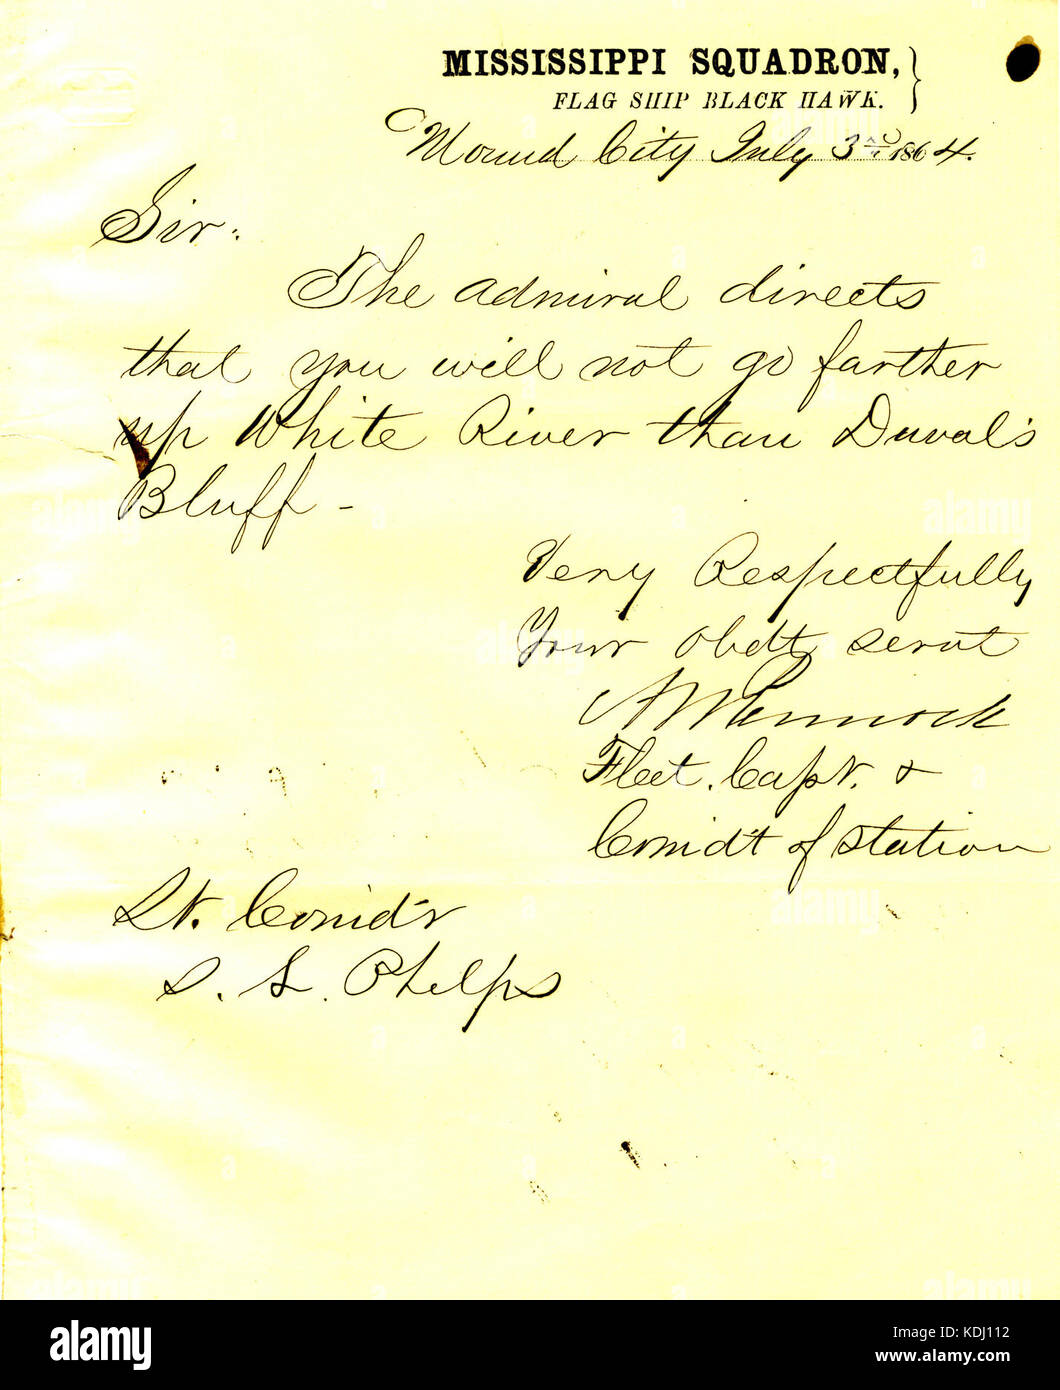 MISSISSIPPI SQUADRON,
FLAG SHIP BLACK HAWK.
Mound City July 3rd 1864.
Sir:
The Admiral directs
that you will not go farther
up White River than Duval's
Bluff-
Very Respectfully
Your Obdt servt
A M Pennock
Fleet. Capt. &
Comdt of Station
Lt. Comdr
S. L. Phelps
alamy
Image ID: KDJ112
www.alamy.com